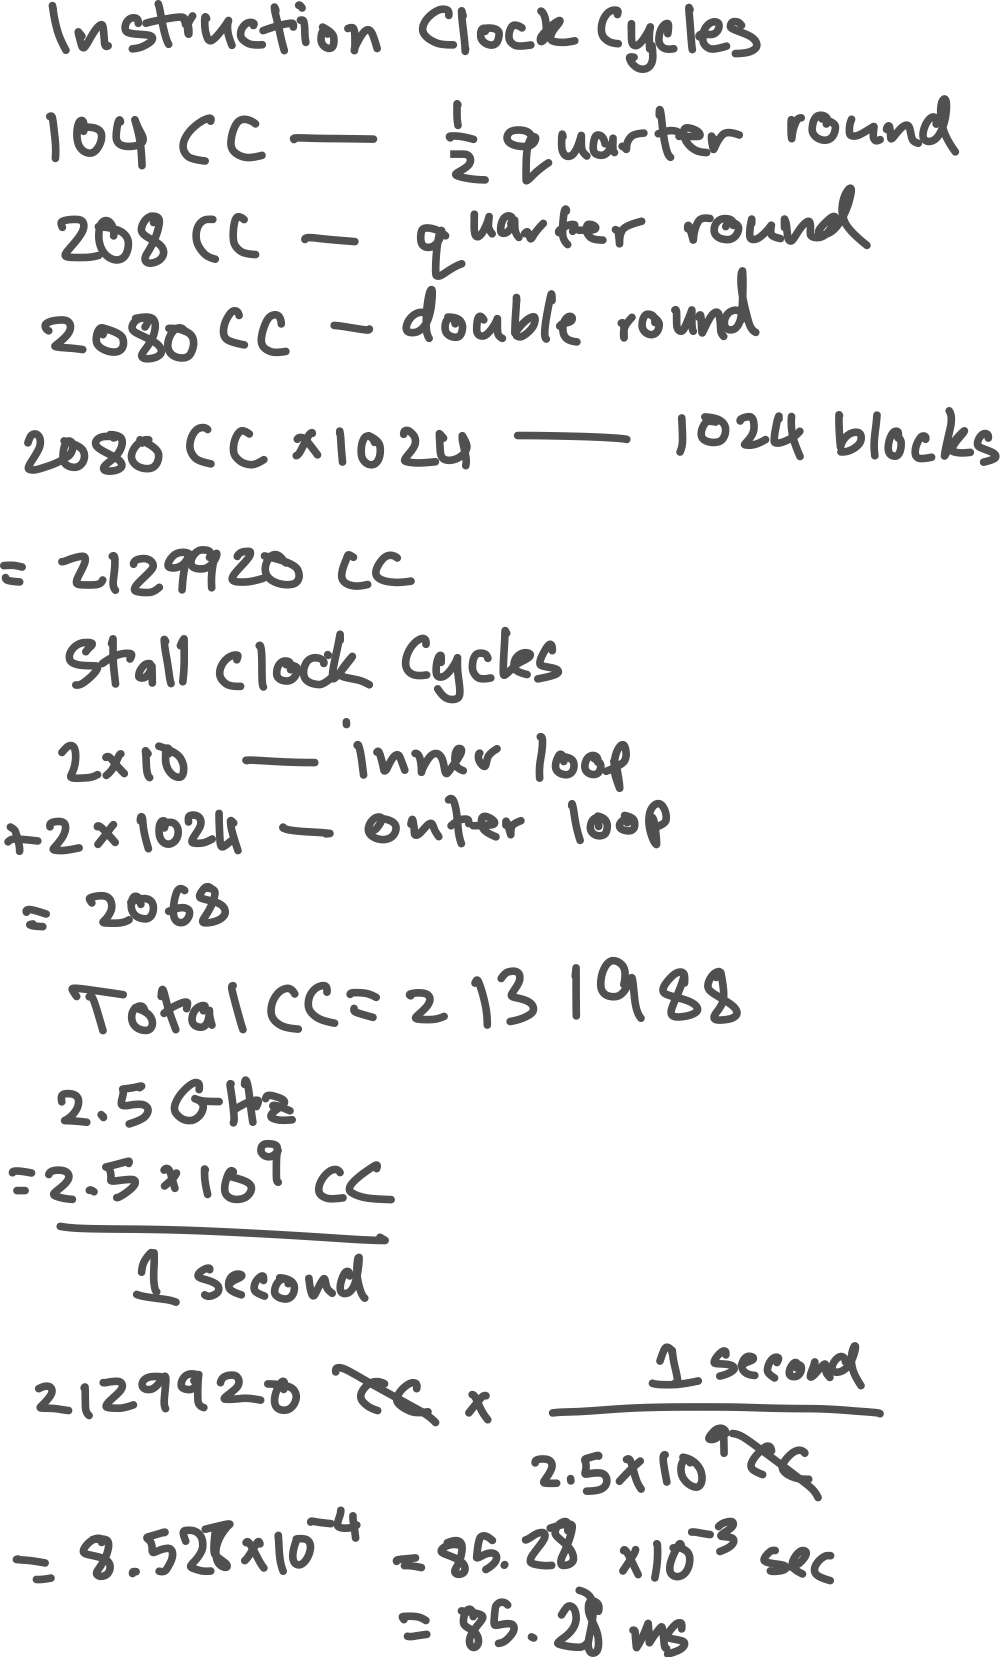 Instruction Clock Cycles
104 CC — 1/2 quarter round
208 CC — quarter round
2080 CC — double round
2080 CC x 1024 — 1024 blocks
= 2129920 CC
Stall clock Cycles
2x10 — inner loop
+2 x 1024 — outer loop
= 2068
Total CC = 2131988
2.5 GHz
= 2.5 x 10^9 CC
1 second
2129920 CC x 1 second
2.5 x 10^9 CC
= 8.528 x 10^-4 = 85.28 x 10^-3 sec
= 85.28 ms